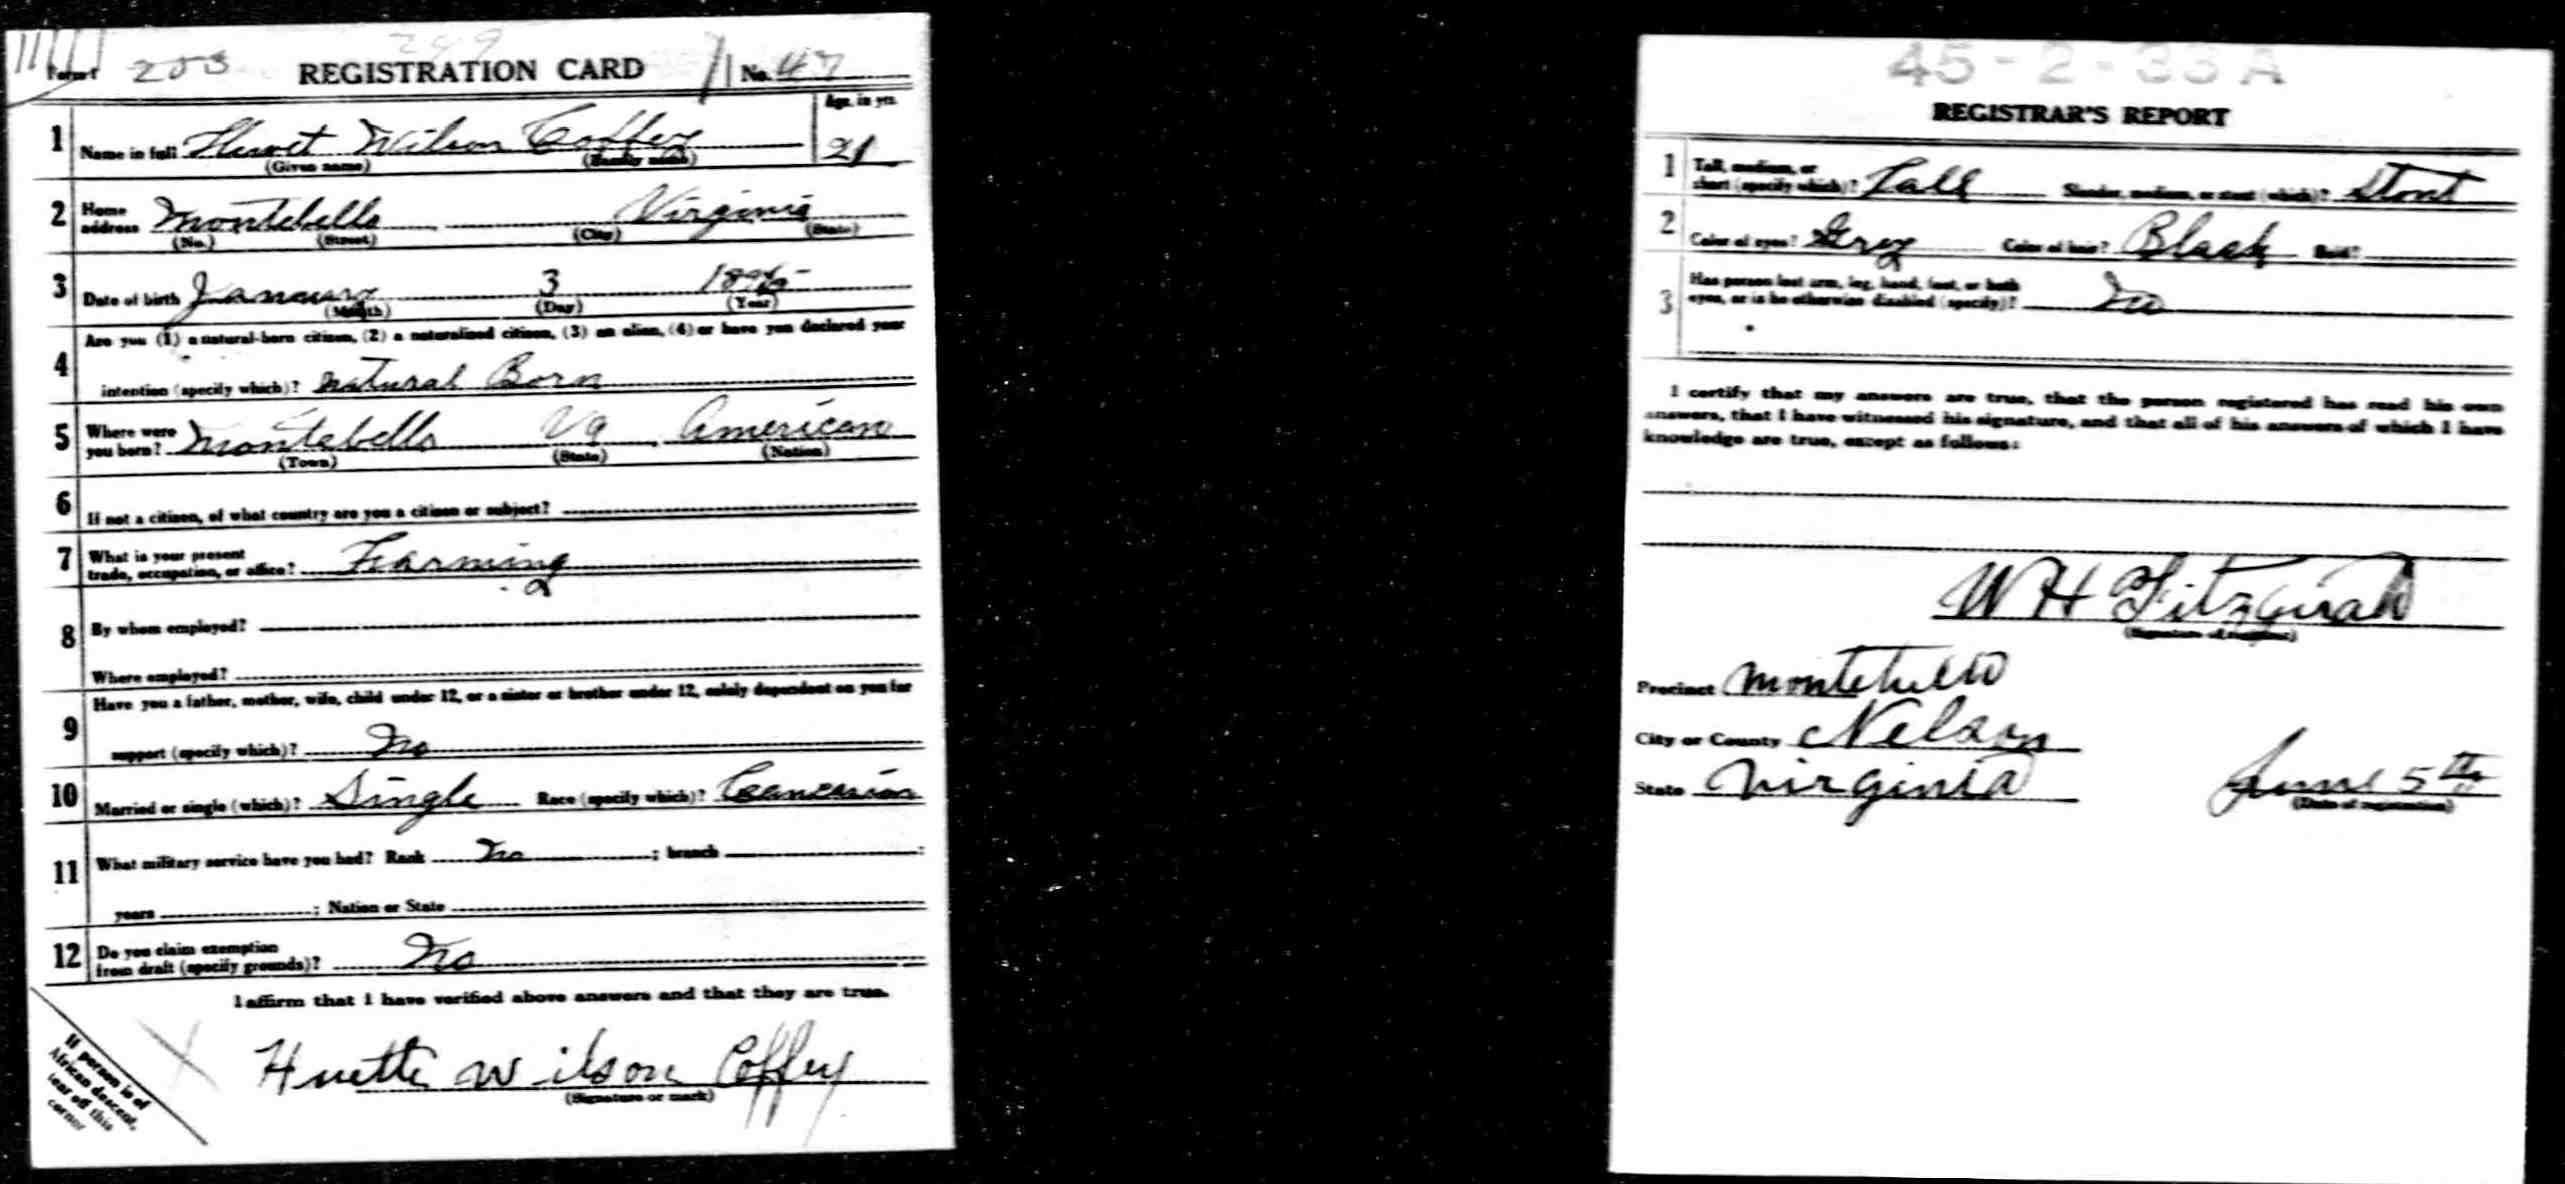 Form 1 203 REGISTRATION CARD No. 47
Age, in yrs.
1 Name in full Wilson Coffey 21
(Given name) (Family name)
2 Home address Montebello Virginia
(No.) (Street) (City) (State)
3 Date of birth January 3
(Month) (Day) (Year)
Are you (1) a natural-born citizen, (2) a naturalized citizen, (3) an alien, (4) or have you declared your
4 intention (specify which)? Natural Born
5 Where were you born? Montebello Va American
(Town) (State) (Nation)
6 If not a citizen, of what country are you a citizen or subject?
7 What is your present trade, occupation, or office? Farming
8 By whom employed?
Where employed?
Have you a father, mother, wife, child under 12, or a sister or brother under 12, solely dependent on you for
9 support (specify which)? No
10 Married or single (which)? Single Race (specify which)? Caucasian
11 What military service have you had? Rank No ; branch ;
years ; Nation or State
12 Do you claim exemption from draft (specify grounds)? No
I affirm that I have verified above answers and that they are true.
Wilson Coffey
(Signature or mark)
If person is of
African descent,
tear off this
corner
45-2-33 A
REGISTRAR'S REPORT
1 Tall, medium, or short (specify which)? Tall Slender, medium, or stout (which)? Stout
2 Color of eyes? Grey Color of hair? Black Bald?
3 Has person lost arm, leg, hand, foot, or both
eyes, or is he otherwise disabled (specify)? No
I certify that my answers are true, that the person registered has read his own
answers, that I have witnessed his signature, and that all of his answers of which I have
knowledge are true, except as follows:
W H Fitzgerald
(Signature of registrar)
Precinct Montebello
City or County Nelson
State Virginia June 5th
(Date of registration)